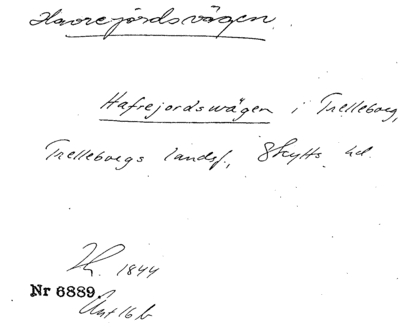 Havrejordsvägen
Hafrejordswägen i Trelleborg,
Trelleborgs landsf., Skytts hd.
1844
Nr 6889.